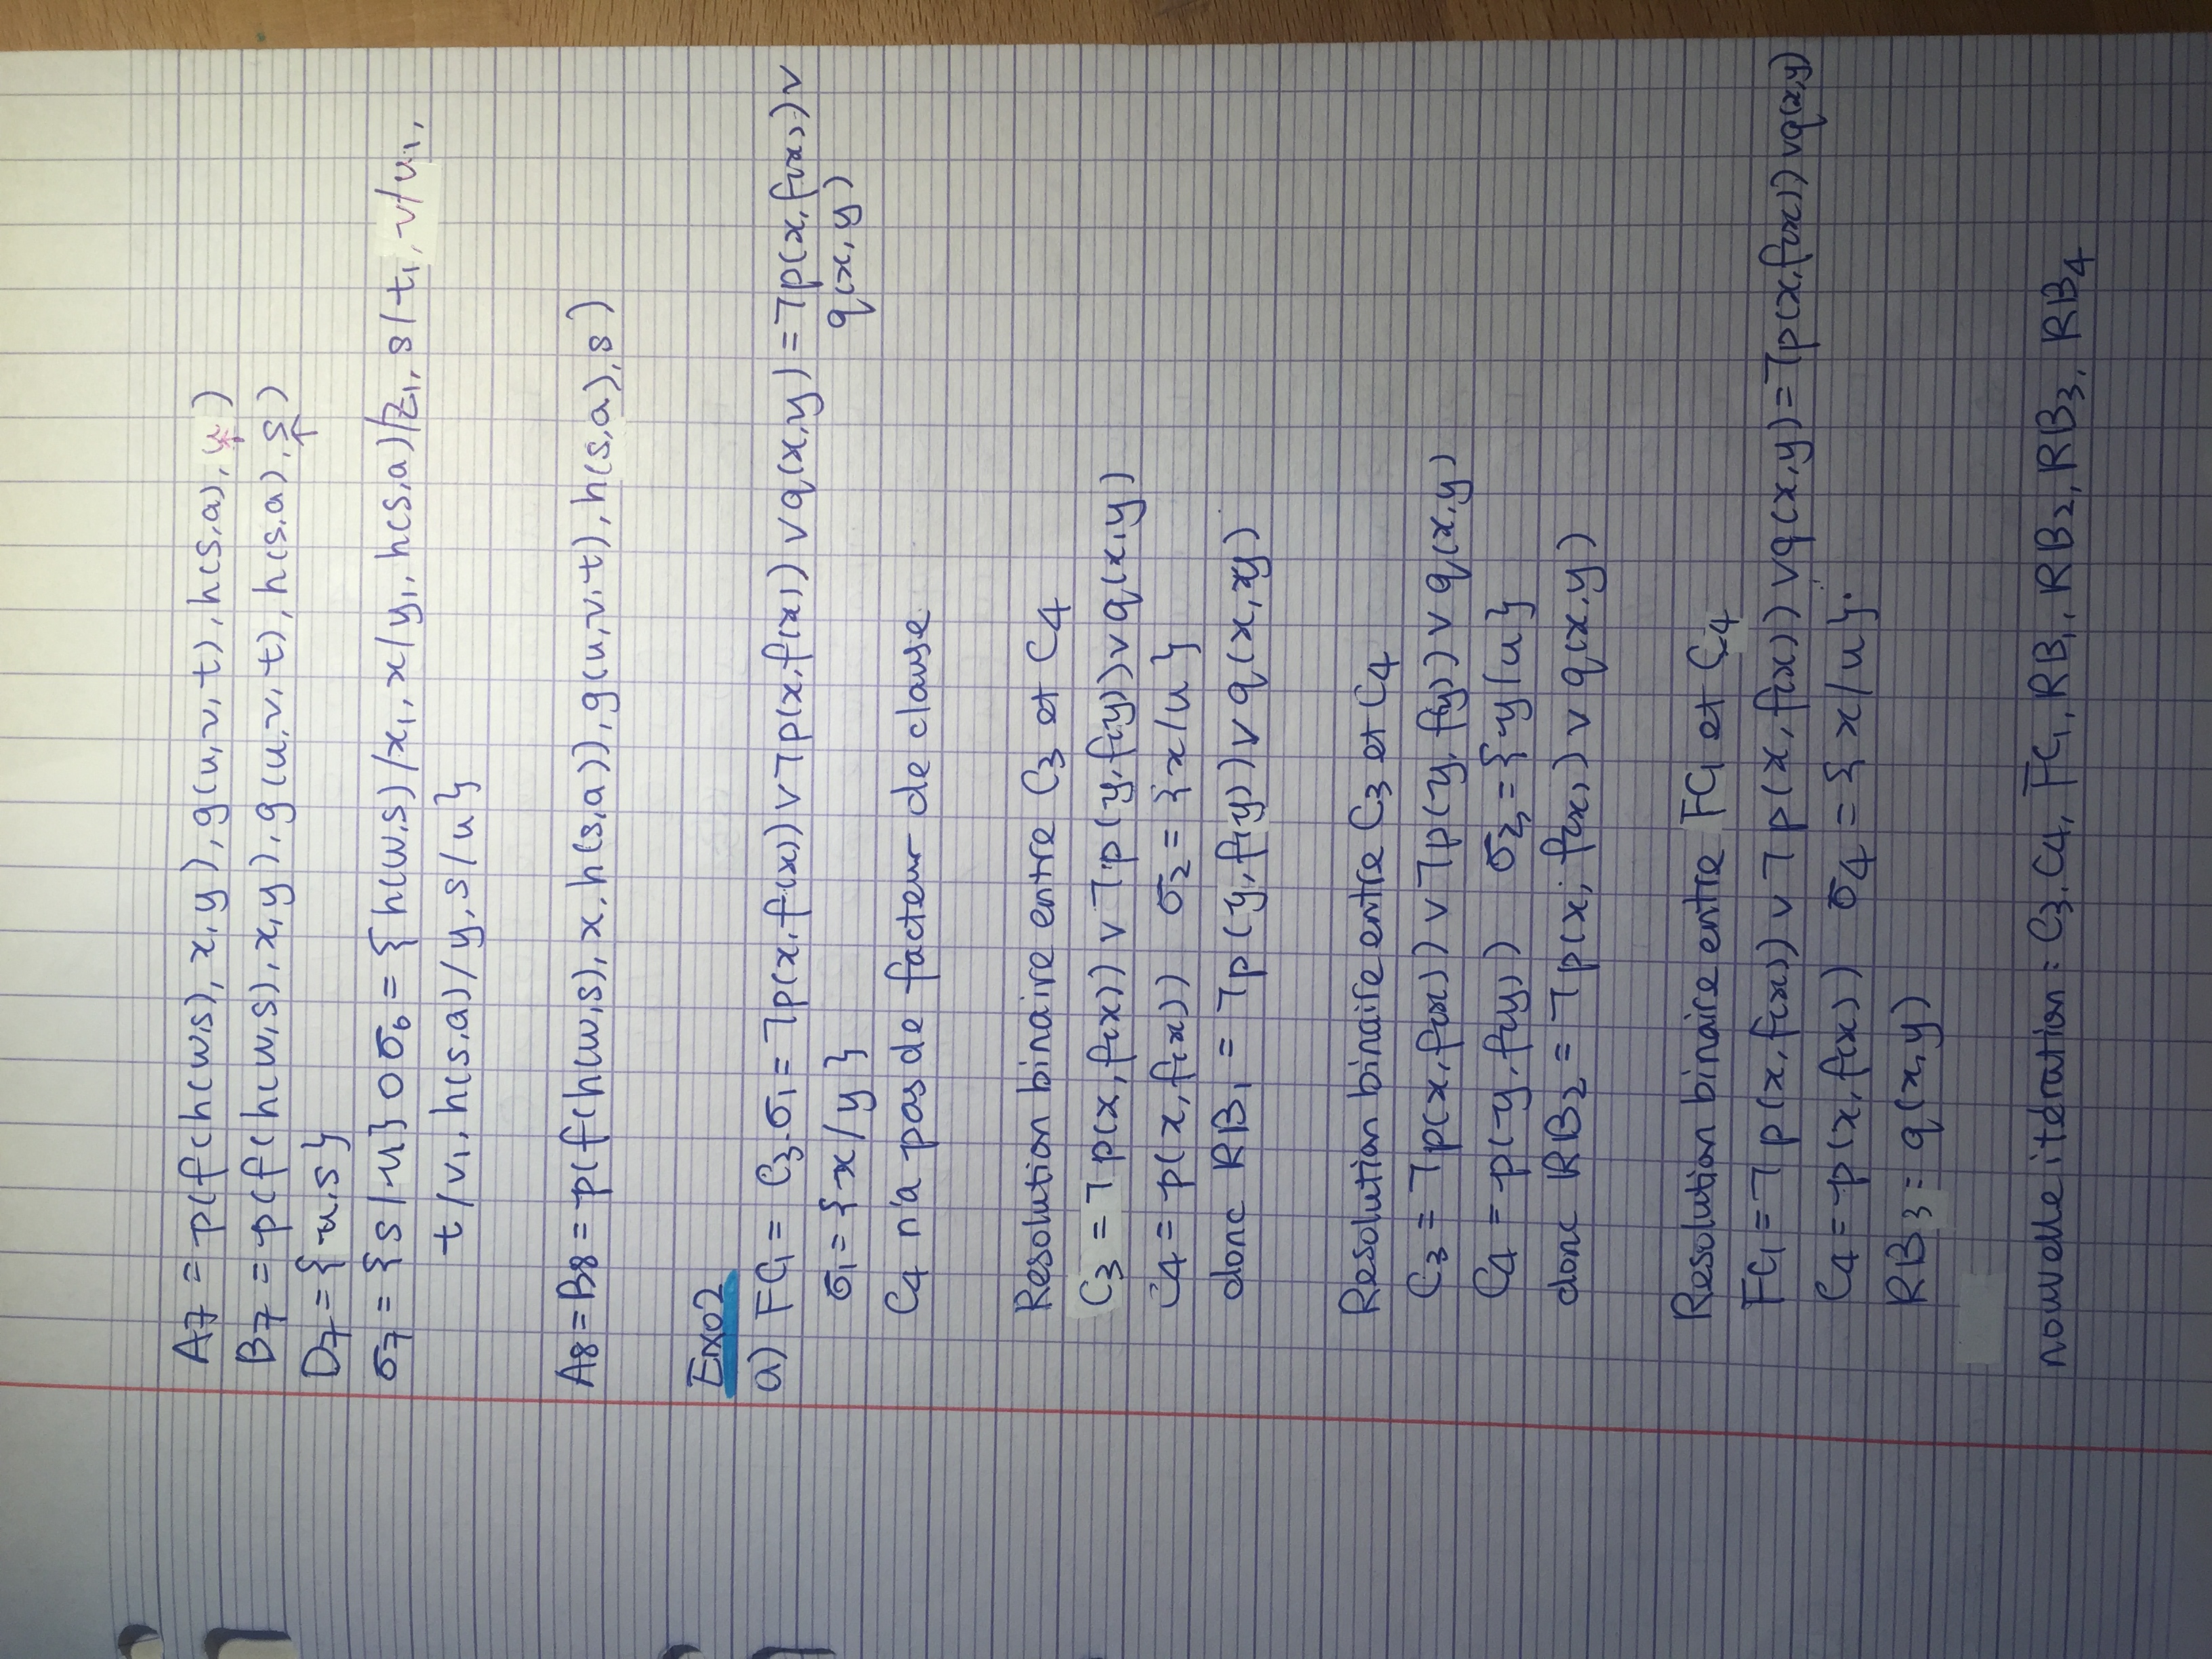 A7 = p(f(h(w,s), x, y), g(u,v,t), h(s,a), u)
↑
B7 = p(f(h(w,s), x, y), g(u,v,t), h(s,a), s)
↑
D7 = {u,s}
σ7 = {s/u} o σ6 = {h(w,s)/x1, x/y1, h(s,a)/z1, s/t1, v/u1,
t/v1, h(s,a)/y, s/u}
A8 = B8 = p(f(h(w,s), x, h(s,a)), g(u,v,t), h(s,a), s)
Exo2
a) FC1 = C3.σ1 = ¬p(x,f(x)) ∨ ¬p(x,f(x)) ∨ q(x,y) = ¬p(x,f(x)) ∨
q(x,y)
σ1 = {x/y}
C4 n'a pas de facteur de clause
Resolution binaire entre C3 et C4
C3 = ¬p(x,f(x)) ∨ ¬p(y,f(y)) ∨ q(x,y)
C4 = p(x,f(x)) σ2 = {x/u}
donc RB1 = ¬p(y,f(y)) ∨ q(x,xy)
Resolution binaire entre C3 et C4
C3 = ¬p(x,f(x)) ∨ ¬p(y,f(y)) ∨ q(x,y)
C4 = p(y,f(y)) σ3 = {y/u}
donc RB2 = ¬p(x,f(x)) ∨ q(x,y)
Resolution binaire entre FC1 et C4
FC1 = ¬p(x,f(x)) ∨ ¬p(x,f(x)) ∨ q(x,y) = ¬p(x,f(x)) ∨ q(x,y)
C4 = p(x,f(x)) σ4 = {x/u}.
RB3 = q(x,y)
nouvelle itération : C3, C4, FC1, RB1, RB2, RB3, RB4